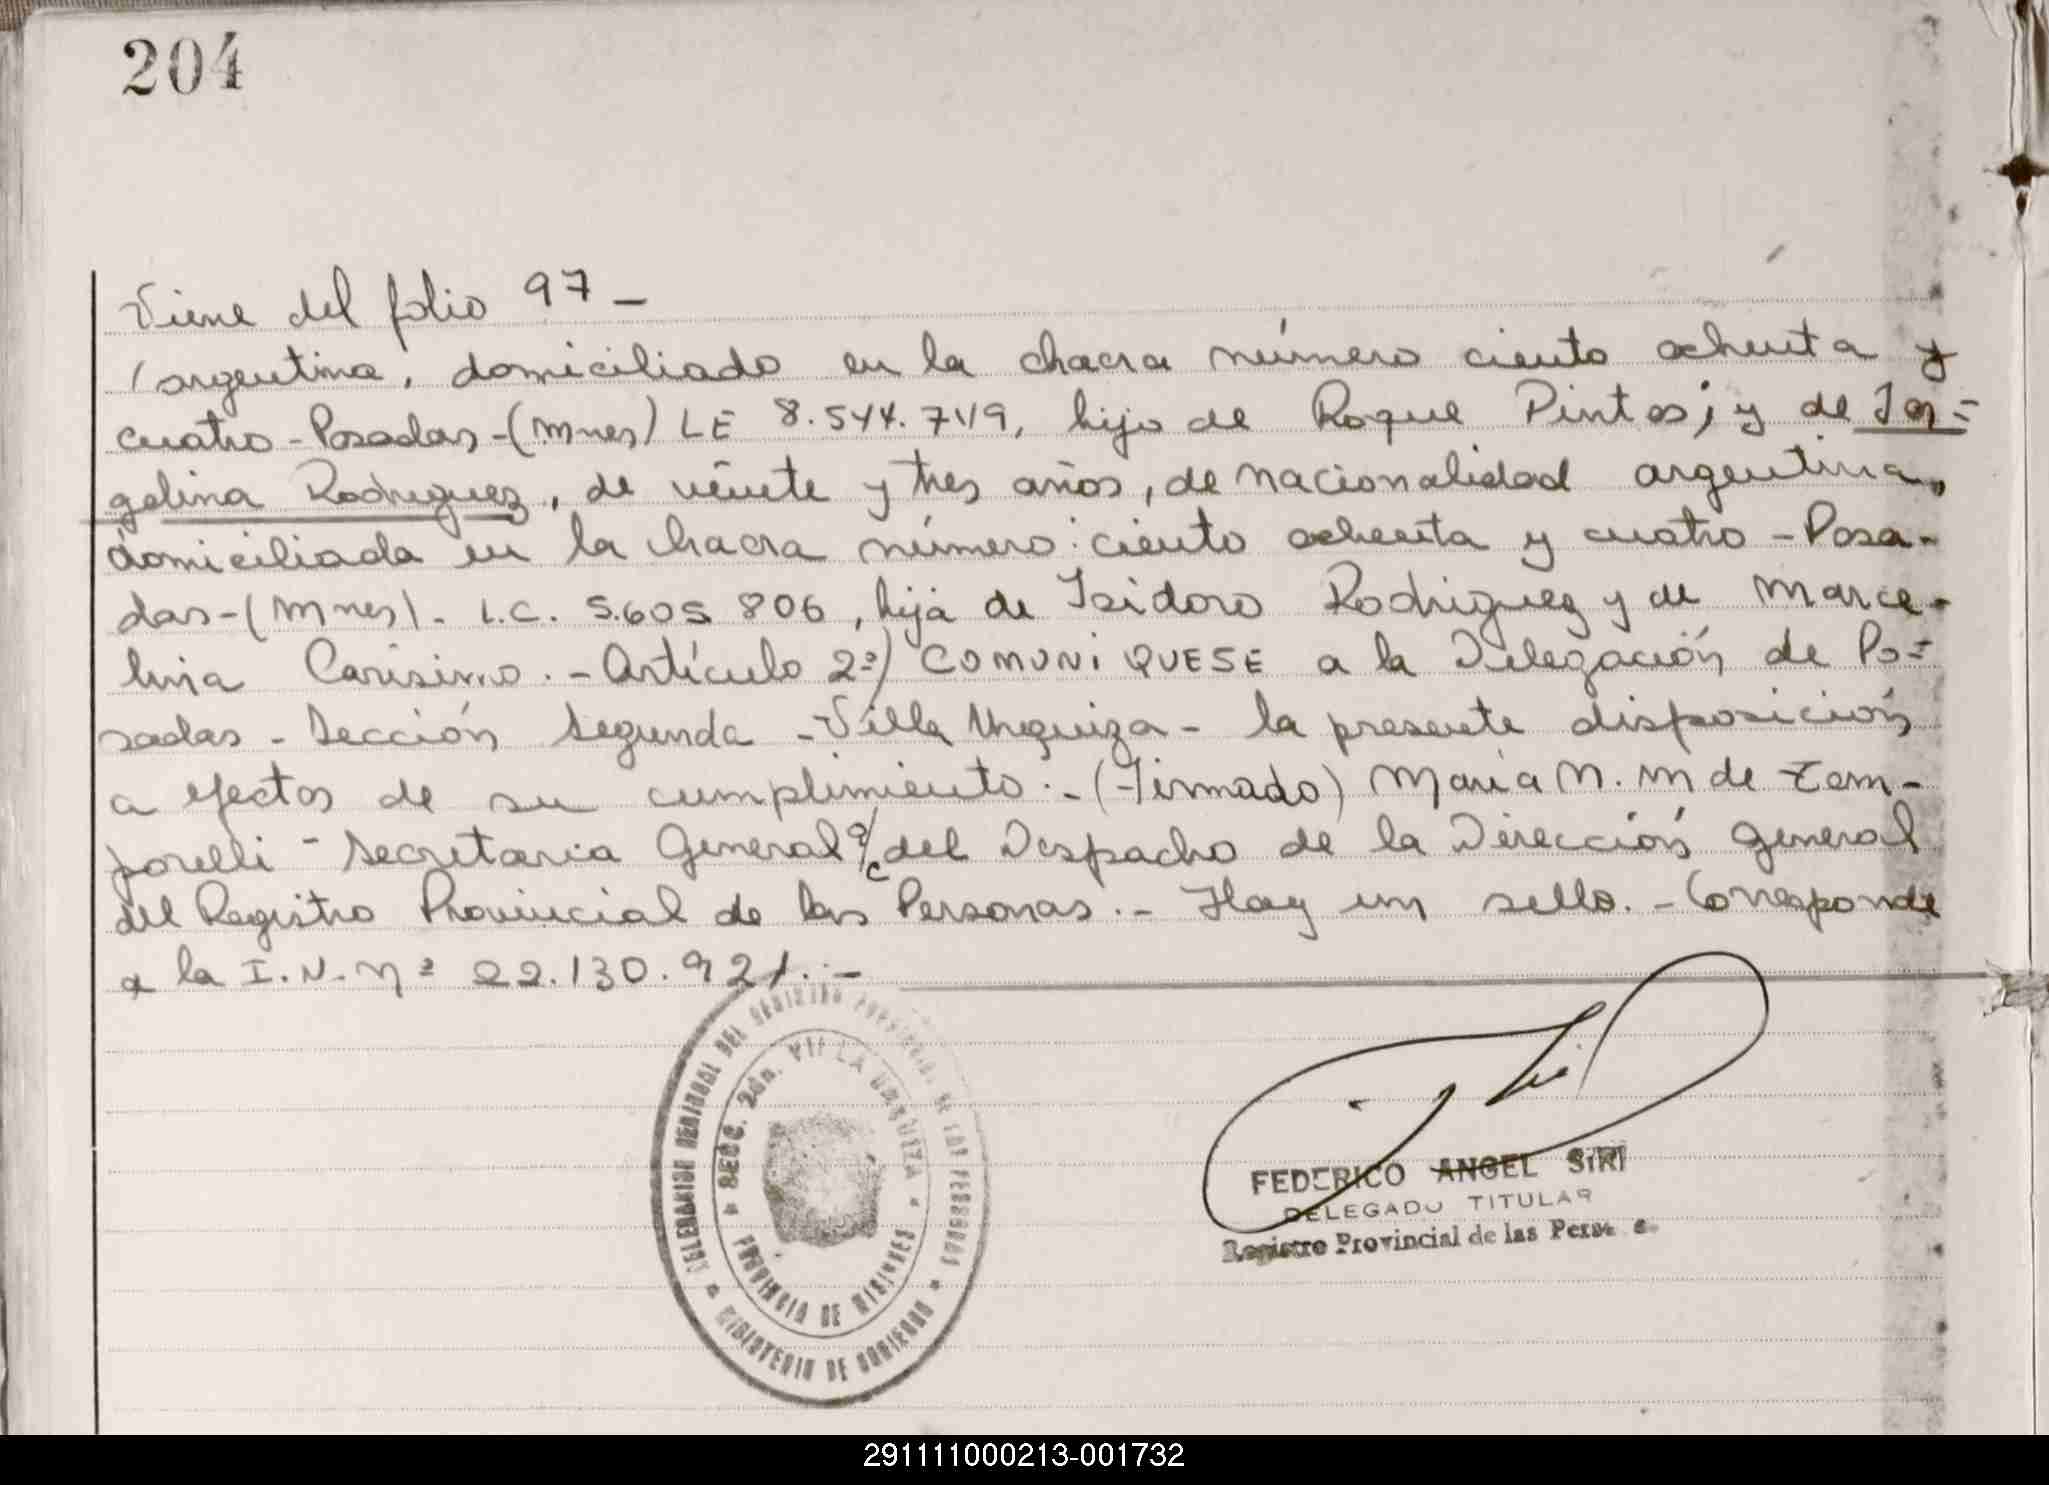 204
Viene del folio 97 -
/argentina, domiciliado en la chacra número ciento ochenta y
cuatro - Posadas - (Mnes) LE 8.544.749, hijo de Roque Pintos; y de
gelina Rodriguez, de veinte y tres años, de nacionalidad argentina,
domiciliada en la chacra número: ciento ochenta y cuatro - Posa-
das - (Mnes). L.C. 5.605.806, hija de Isidoro Rodriguez y de Marce-
lina Carísimo. - Artículo 2º) COMUNIQUESE a la Delegación de Po=
sadas - Sección Segunda - Villa Urquiza - la presente disposición
a efectos de su cumplimiento. - (Firmado) María N. M de Tem-
porelli - Secretaria General a/c del Despacho de la Dirección General
del Registro Provincial de las Personas. - Hay un sello. - Corresponde
a la I.N. Nº 22.130.921. -
DELEGACION SECCIONAL DEL REGISTRO PROVINCIAL DE LAS PERSONAS
SECC. 2da. VILLA URQUIZA
PROVINCIA DE MISIONES
MINISTERIO DE GOBIERNO
FEDERICO ANGEL SIRI
DELEGADO TITULAR
Registro Provincial de las Pers
291111000213-001732